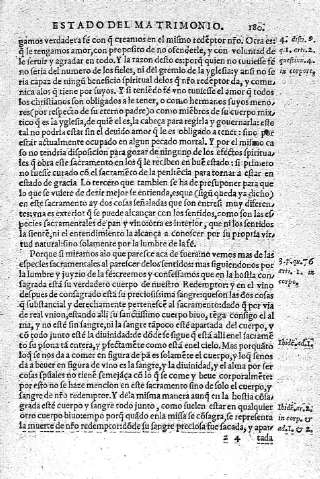 ESTADO DEL MATRIMONIO. 180.
gamos verdadera fé con q̃ creamos en el mismo redẽptor nr̃o. Otra es
q̃ le tengamos amor, con proposito de no ofenderle, y con voluntad de
le seruir y agradar en todo. Y la razon desto es porq̃ quien no tuuiese fé
no seria del numero de los fieles, ni del gremio de la yglesia y ansi no se
ria capaz de ningũ beneficio spiritual delos q̃ nr̃o redẽptor cõmunica
como a amigos suyos. Y si teniẽdo fé no tuuiese el amor q̃ todos
los christianos son obligados a le tener, o como hermanos suyos meno
res (por respecto de su eterno padre) o como miẽbros de su cuerpo mix
tico q̃ es la yglesia, de quiẽ el es la cabeça para regirla y gouernarla: este
tal no podria estar sin el deuido amor q̃ le es obligado a tener: sino por
estar actualmente ocupado en algun pecado mortal. Y por el mismo ca
so no tendria disposicion para gozar de ninguno de los effectos spiritua
les q̃ obra este sacramento en los q̃ le reciben en buẽ estado: si primero
no fuese curado cõ el sacramẽto de la penitẽcia para tornar a estar en
estado de gracia. Lo tercero que tambien se ha de presuponer para que
lo que se vuiere de dezir mejor se entienda, es que (sigũ queda ya dicho)
en este sacramento ay dos cosas señaladas que son entresi muy differen
tes: vna es exterior q̃ se puede alcançar con los sentidos, como son las es
pecies sacramentales de pan y vino: otra es interior, que ni los sentidos
la sienten, ni el entendimiento la alcança a conoscer por su propria vir
tud natural: sino solamente por la lumbre de la fé.
Porque si miramos alo que paresce aca de fuera no vemos mas de las
especies sacramentales al parescer delos sentidos: mas siguiendonos por
la lumbre y juyzio de la fé: creemos y confessamos que en la hostia con
sagrada está su verdadero cuerpo de nuestro Redemptor: y en el vino
despues de consagrado está su preciosissima sangre: que son las dos cosas
q̃ substancial y derechamẽte pertenescẽ al sacramento: dado q̃ por via
de real vnion, estando alli su sanctissimo cuerpo biuo, tẽga consigo el al
ma, y no esté sin sangre, ni la sangre tãpoco esté apartada del cuerpo, y
cõ todo junto esté la diuinidad: de dõde se sigue q̃ está alli en el sacramẽ
to su psona tã entera, y pfectamẽte como está en el cielo. Mas porquãto
loq̃ se nos da a comer en figura de pã es solamẽte el cuerpo, y loq̃ senos
da a beuer en figura de vino es la sangre, y la diuinidad, y el alma por ser
cosas spũales no tienẽ semejãça cõ lo q̃ se come y beue corporalmẽte:
por esto no se haze mencion en este sacramento sino de solo el cuerpo, y
sangre de nr̃o redemptor. Y dela misma manera aunq̃ en la hostia cõsa
grada esté cuerpo y sangre todo junto, como suelen estar en qualquier
otro cuerpo biuo: empo porq̃ quãdo enla missa se cõsagra, se representa
la muerte de nr̃o redemptor: dõde su sangre preciosa fue sacada, y apar
z 4 tada
4. dist. 9.
q. 1. arti. 2.
in corpore,
3. p. qu. 76
arti. 1. in
corpo.
Ibidẽ. ad. 1.
Ibidẽ. ar. 2
in corpo. &
ad. 1. & 2.